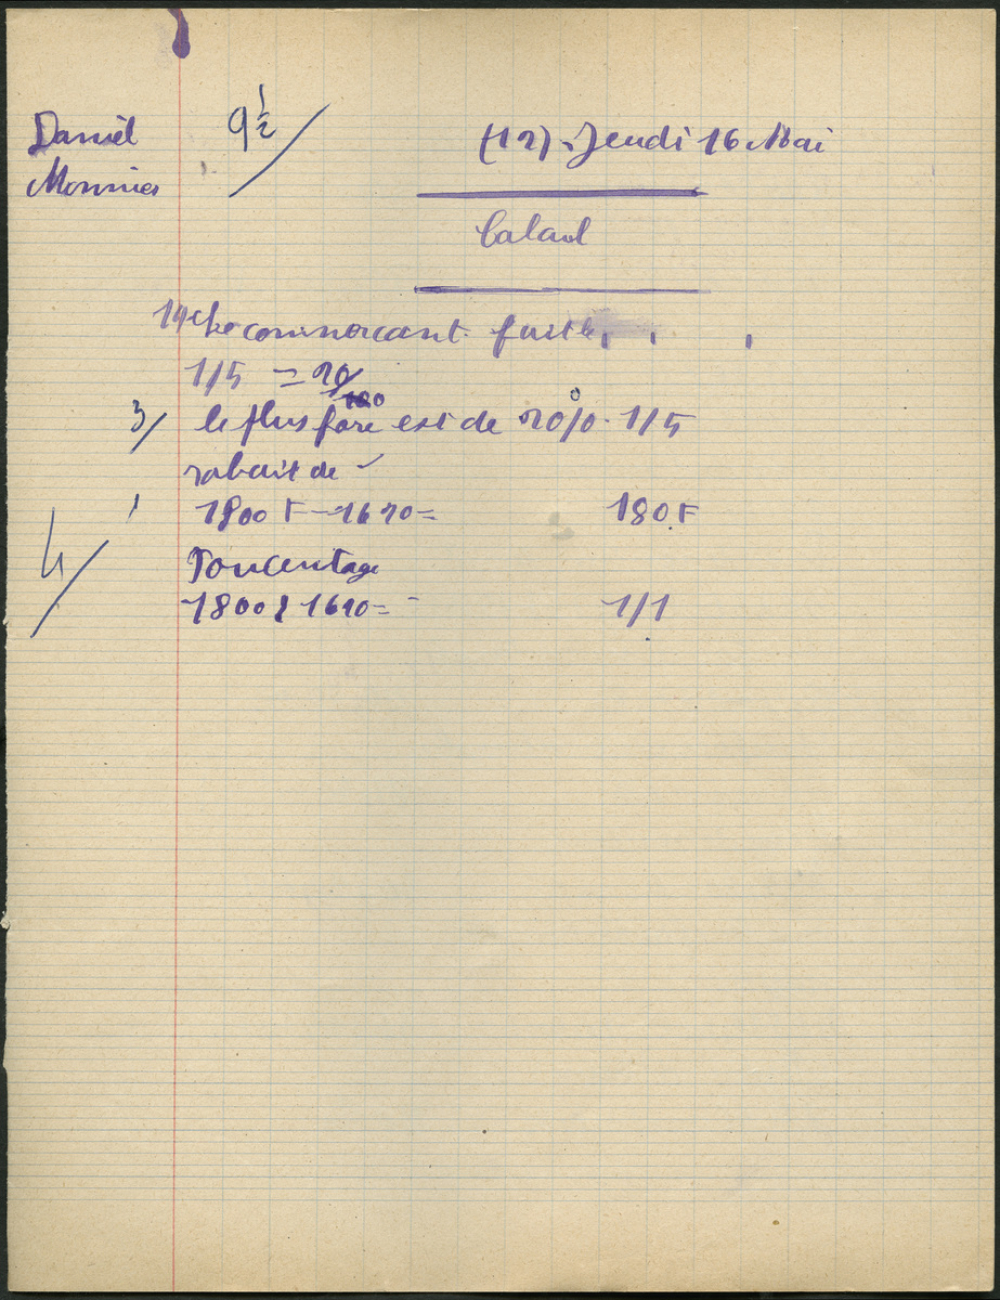 Daniel
Monnier
9 1/2
(12). Jeudi 16 Mai
Calcul
commercant fait le
1/5 = 20/100
3/ le plus fore est de 20%. 1/5
rabait de
1800 F - 1620 = 180 F
4/
Pourcentage
1800 1620 = 1/1